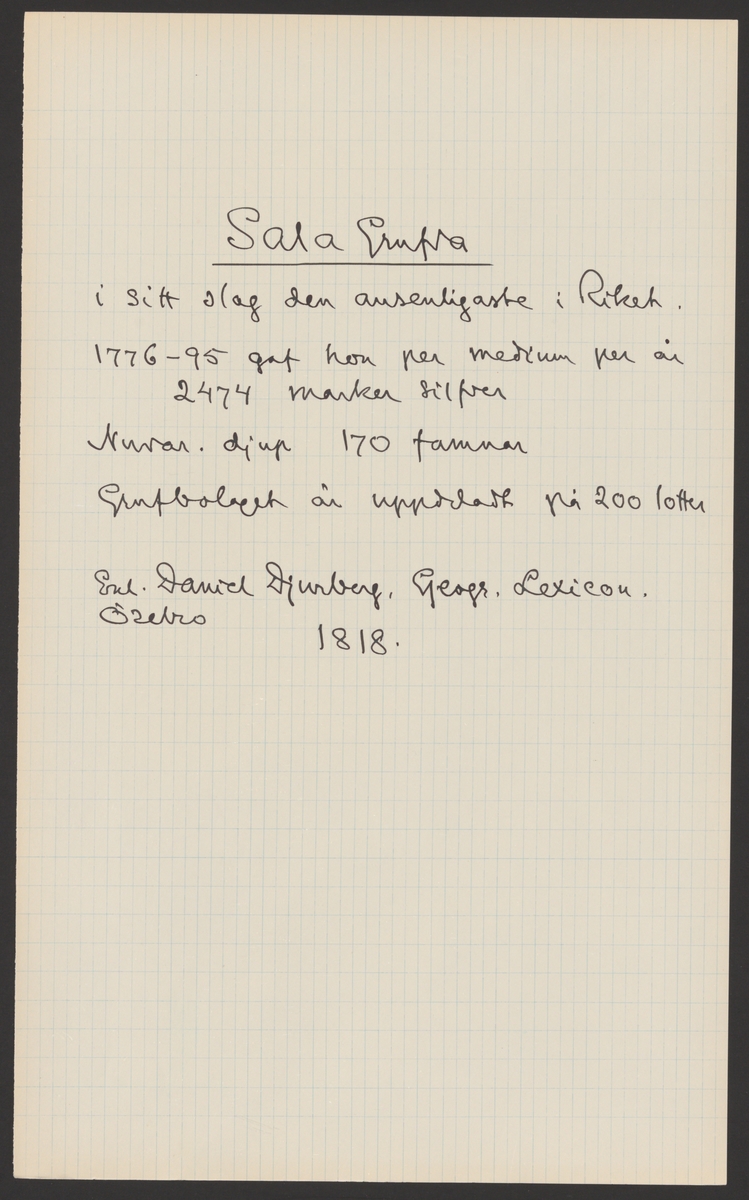 Sala Grufva
i sitt slag den ansenligaste i Riket.
1776-95 gaf hon per medium per år
2474 marker silfver
Nuvar. djup 170 famnar
Grufbolaget är uppdeladt på 200 lotter
Enl. Daniel Djurberg, Geogr. Lexicon.
Örebro
1818.